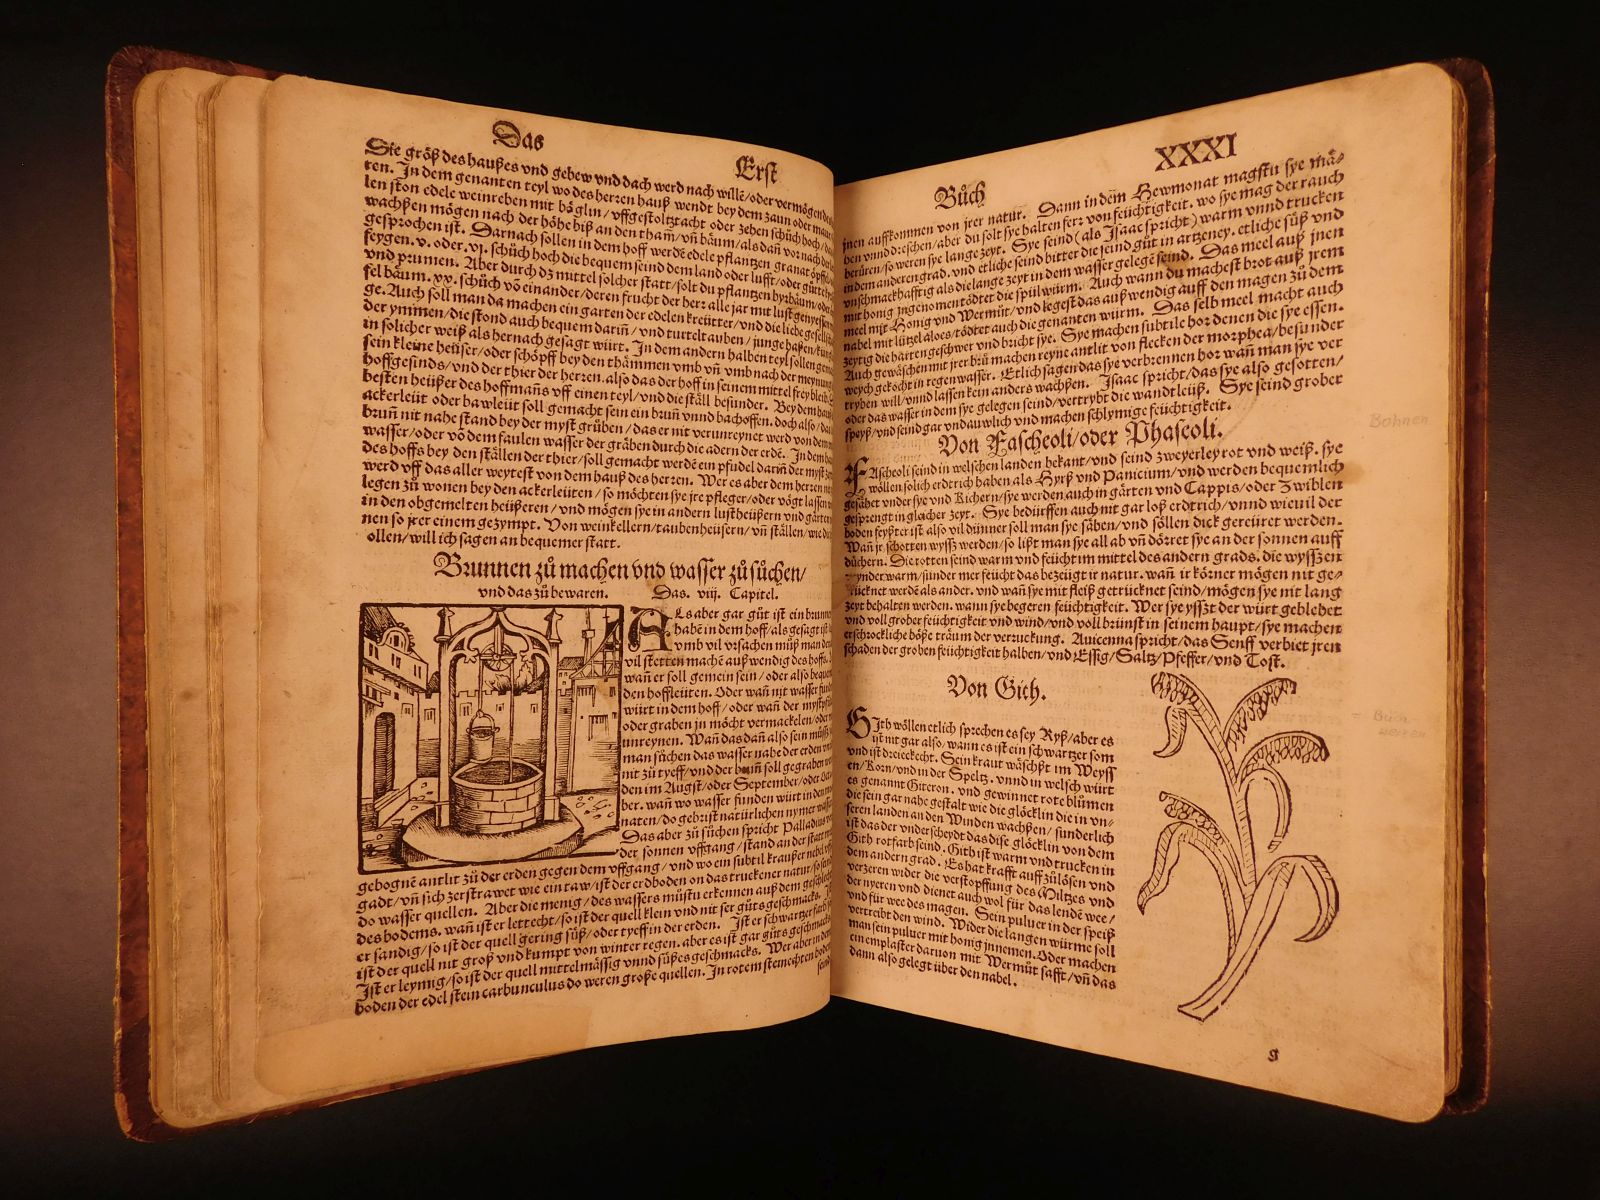 Das
Erst
Die größ des haußes vnd gebew vnd dach werd nach willē/oder vermögen des
ren. In dem genanten teyl wo des herren hauß wendt bey dem zaun oder maur
len ston edele weinreben mit böglin/vffgestoltzt acht oder zehen schůch hoch/
wachßen mögen nach der höhe biß an den tham̄/vn̄ bäum/als dan̄ vor nach
gesprochen ist. Darnach sollen in dem hoff werdē edele pflantzen granat öpffel
feygen. v. oder. vj. schůch hoch die bequem seind dem land oder lufft/oder gůt
vnd prumen. Aber durch dz mittel solcher statt/solt du pflantzen byrbäum/oder
fel bäum. xx. schůch vō einander/deren frucht der herr alle jar mit lust genyessen
ge. Auch soll man da machen ein garten der edelen kreütter/vnd die liebe gesellschafft
der ymmen/die stond auch bequem darin̄/vnd turteltauben/junge haßen/
in solicher weiß als hernach gesagt würt. In dem andern halben teyl sollen
sein kleine heüser/oder schöpff bey den thämmen vmb vn̄ vmb nach der meynung
hoffgesinds/vnd der thier der herren. also das der hoff in seinem mittel frey bleib.
besten heüßer des hoffmans vff einen teyl/vnd die ställ besunder. Bey dem hauß
ackerleüt oder bawleüt soll gemacht sein ein brun̄ vnnd bachoffen. doch also/das
brun̄ nit nahe stand bey der myst grüben/das er nit verunreynet werd von dem
wasser/oder vō dem faulen wasser der gräben durch die adern der erdē. In dem
des hoffs bey den ställen der thier/soll gemacht werdē ein pfudel darin̄ der myst
werd vff das aller weytest von dem hauß des herren. Wer es aber dem herren
legen zů wonen bey den ackerleüten/so möchten sye jre pfleger/oder vögt lassen
in den obgemelten heüßeren/vnd mögen sye in andern lustheüßern vnd gärten
nen so jrer einem gezympt. Von weinkellern/taubenheüsern/vn̄ ställen/wie die
ollen/will ich sagen an bequemer statt.
Brunnen zů machen vnd wasser zů sůchen/
vnd das zů bewaren. Das. viij. Capitel.
ALs aber gar gůt ist ein brunnen
habē in dem hoff/als gesagt ist
vmb vil vrsachen můß man den
vil stetten machē auß wendig des hoffs.
wan̄ er soll gemein sein/oder also bequem
den hoffleüten. Oder wan̄ nit wasser funden
würt in dem hoff/oder wan̄ der mystpfůl
oder graben jn möcht vermackelen/oder
unreynen. Wan̄ das dan̄ also sein můß
man sůchen das wasser nahe der erden vnd
nit zů tyeff/vnd der brun̄ soll gegraben werden
den im Augst/oder September/oder
ber. wan̄ wo wasser funden würt in den
naten/do gebrist natürlichen nymer wasser
Das aber zů sůchen spricht Palladius
der sonnen vffgang/stand an der statt
gebognē antlit zů der erden gegen dem vffgang/vnd wo ein subtil kraußer nebel
gadt/vn̄ sich zerstrawet wie ein taw/ist der erdboden on das truckener natur/so
do wasser quellen. Aber die menig/des wassers můstu erkennen auß dem geschlecht
des bodems. wan̄ ist er lettecht/so ist der quell klein vnd nit ser gůts geschmacks.
er sandig/so ist der quell gering süß/oder tyeff in der erden. Ist er schwartzer farb
ist der quell nit groß vnd kumpt von winter regen. aber es ist gar gůts geschmacks
Ist er leymig/so ist der quell mittelmässig vnnd süßes geschmacks. Wer aber in dem
boden der edel stein carbunculus do weren große quellen. In rotem steinechten boden
seind
Bůch
XXXI
jnen auffkommen von jrer natur. Dann in dem̄ Hewmonat magstu sye mä-
hen vnnd dreschen/aber du solt sye halten ferr von feüchtigkeit. wo sye mag der rauch
berüren/so weren sye lange zeyt. Sye seind (als Isaac spricht) warm vnnd trucken
in dem anderen grad. vnd etliche seind bitter die seind gůt in artzeney. etliche süß vnd
vnschmackhafftig als die lange zeyt in dem wasser gelegē seind. Das meel auß jnen
mit honig jngenomen tödtet die spülwürm. Auch wann du machest brot auß jrem
meel mit Honig vnd Wermůt/vnd legest das auß wendig auff den magen zů dem
nabel mit lützel aloes/tödtet auch die genanten würm. Das selb meel macht auch
zeytig die harten geschwer vnd bricht sye. Sye machen subtile hor denen die sye essen.
Auch gewäschen mit jrer brü machen reyne antlit von flecken der morphea/besunder
weych gekocht in regenwasser. Etlich sagen das sye verbrennen hor wan̄ man sye ver
tryben will/vnnd lassen kein anders wachßen. Isaac spricht/das sye also gesotten/
oder das wasser in dem sye gelegen seind/vertrybt die wandtleüß. Sye seind grober
speyß/vnd seind gar vndauwlich vnd machen schlymige feüchtigkeit.
Bohnen
Von Fascheoli/oder Phaseoli.
FAscheoli seind in welschen landen bekant/vnd seind zweyerley rot vnd weiß. sye
wöllen solich erdtrich haben als Hyrß vnd Panicium/vnd werden bequemlich
gesäbet vnder sye vnd Kichern/sye werden auch in gärten vnd Cappis/oder Zwiblen
gesprengt in gleicher zeyt. Sye bedürffen auch nit gar loß erdtrich/vnnd wieuil der
boden feyßter ist also vil dünner soll man sye säben/vnd söllen dick gereüret werden.
Wan̄ jr schotten wyss werden/so lißt man sye all ab vn̄ dörret sye an der sonnen auff
düchern. Die rotten seind warm vnd feücht im mittel des andern grads. die wyssen
mynder warm/sunder mer feücht das bezeügt jr natur. wan̄ ir körner mögen nit ge-
trücknet werdē als ander. vnd wan̄ sye mit fleiß getrücknet seind/mögen sye nit lang
zeyt behalten werden. wann sye begeren feüchtigkeit. Wer sye ysszt der würt geblehet
vnd voll grober feüchtigkeit vnd wind/vnd voll brünst in seinem haupt/sye machen
erschrockliche böße träum der verzuckung. Auicenna spricht/das Senff verbiet jren
schaden der groben feüchtigkeit halben/vnd Essig/Saltz/Pfeffer/vnd Tost.
Von Gith.
GIth wöllen etlich sprechen es sey Ryß/aber es
ist nit gar also/wann es ist ein schwartzer som
vnd ist dreieckecht. Sein kraut wächßt im Weyss
en/Korn/vnd in der Speltz. vnnd in welsch würt
es genannt Giteron. vnd gewinnet rote blůmen
die sein gar nahe gestalt wie die glöcklin die in vn-
seren landen an den Winden wachßen/sunderlich
ist das der vnderscheydt das dise glöcklin von dem
Gith rotfarb seind. Gith ist warm vnd trucken in
dem andern grad. Es hat krafft auff zůlösen vnd
verzeren wider die verstopffung des Miltzes vnd
der nyeren vnd dienet auch wol für das lende wee/
vnd für wee des magen. Sein puluer in der speiß
vertreibt den wind. Wider die langen würme soll
man sein puluer mit honig jnnemen. Oder machen
ein emplaster daruon mit Wermůt safft/vn̄ das
dann also gelegt über den nabel.
g